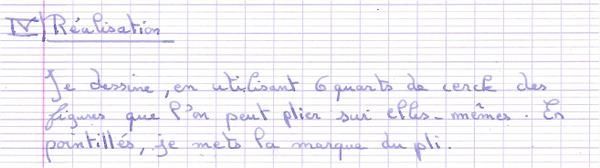 IV) Réalisation
Je dessine, en utilisant 6 quarts de cercle des
figures que l'on peut plier sur elles-mêmes. En
pointillés, je mets la marque du pli.